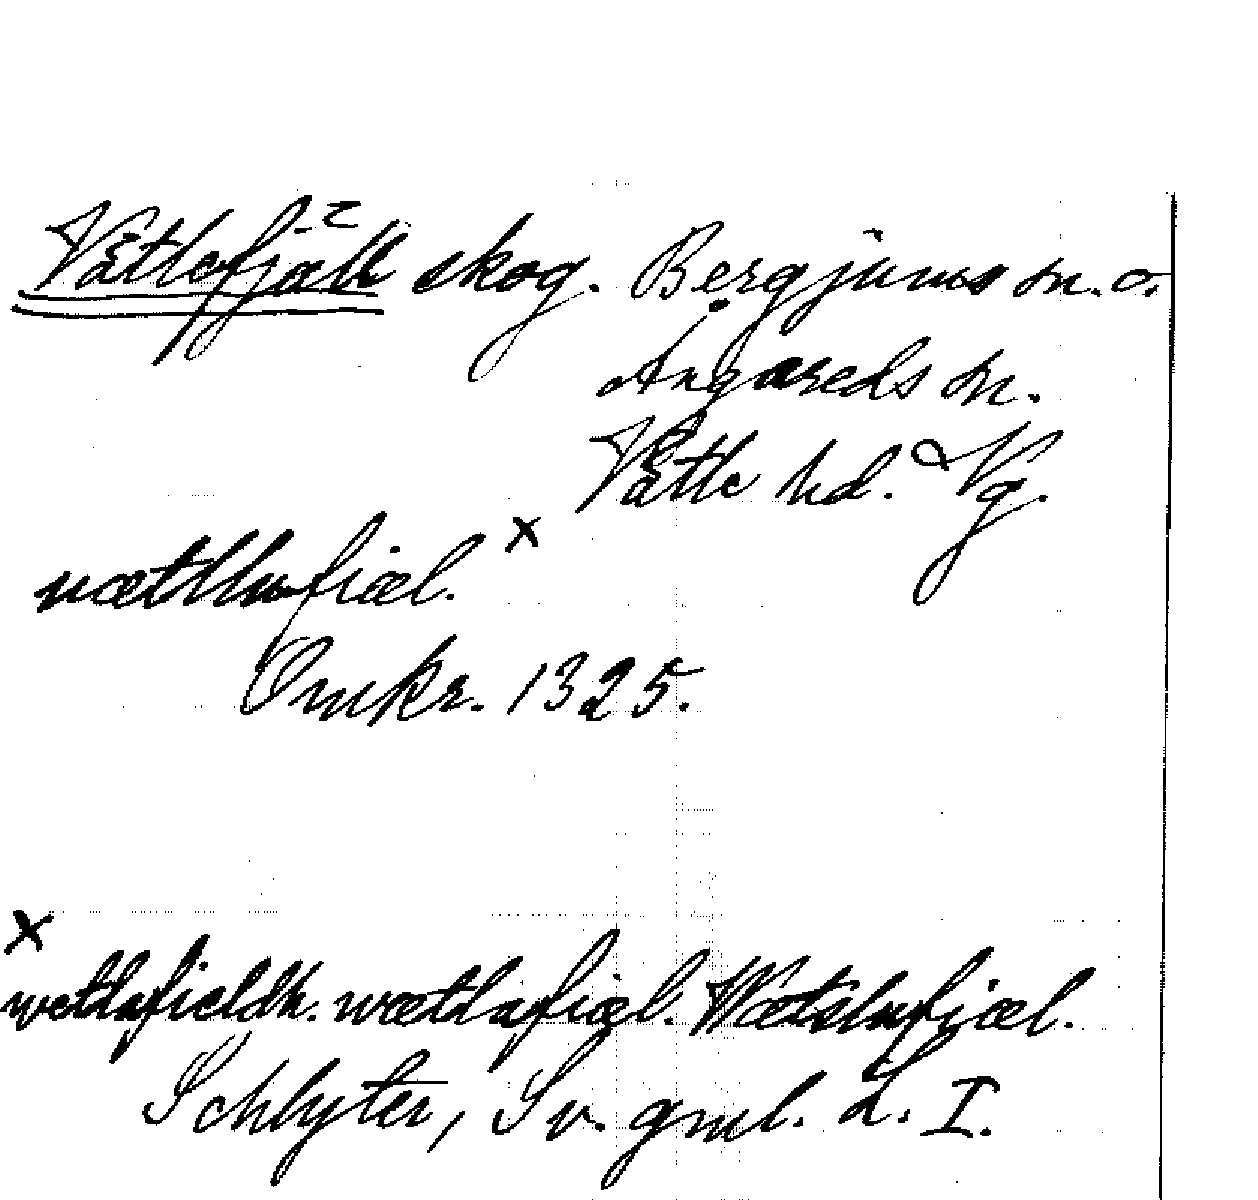 Vättlefjäll skog. Bergjums sn. o.
Angereds sn.
Vättle hd. Vg.
vætthlufiæl. x
Omkr. 1325.
x
wetlafieldh. wætlafiæl. Wætslufiæl.
Schlyter, Sv. gml. L. I.